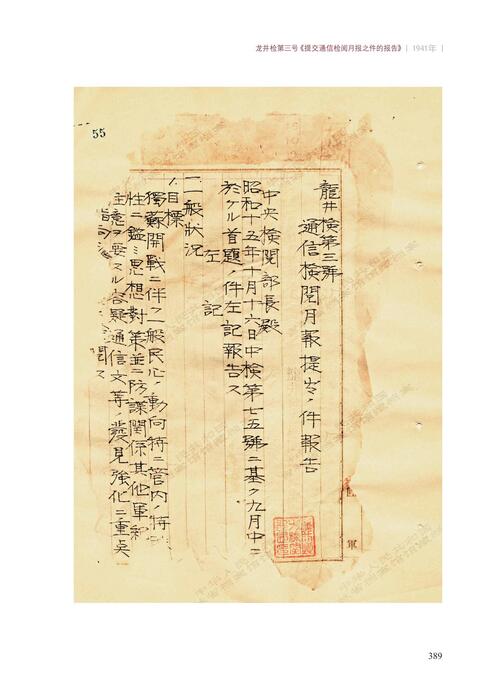 龙井检第三号《提交通信检阅月报之件的报告》 | 1941年 |
55
龍井檢第三號
通信檢閱月報提出ノ件報告
中央檢閱部長殿
昭和十五年十月十六日中檢第七五號ニ基ク九月中ニ
於ケル首題ノ件左記報告ス
左記
一、一般狀況
1、目標
獨蘇開戰ニ伴フ一般民心ノ動向特ニ管內ノ特
性ニ鑑ミ思想對策並ニ防諜關係其他軍
主意ヲ要スル容疑通信文等ノ發見強化ニ重點
軍
389